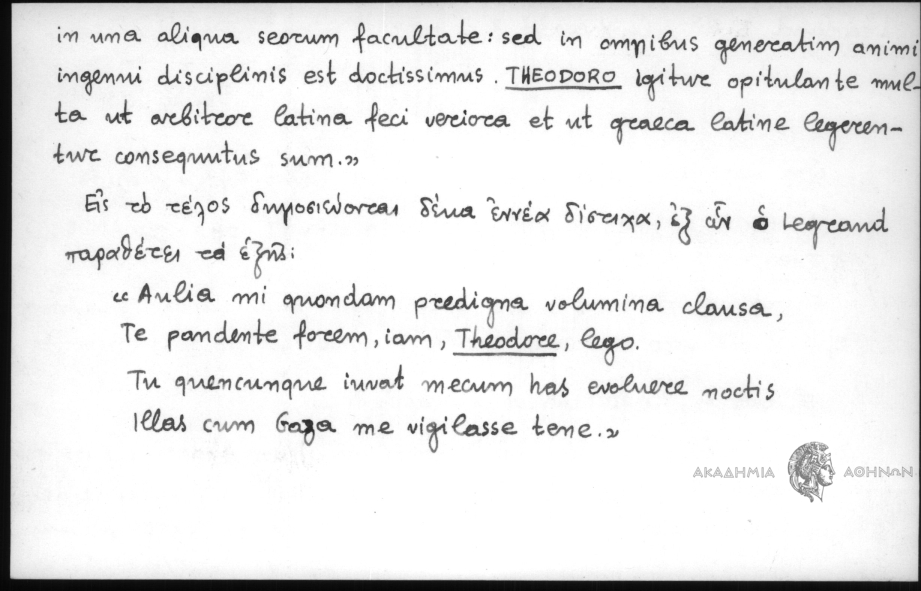 in una aliqua seorum facultate: sed in omnibus generatim animi
ingenui disciplinis est doctissimus. THEODORO igitur opitulante mul-
ta ut arbitror latina feci veriora et ut graeca latine legeren-
tur consequutus sum.»
Εἰς τὸ τέλος δημοσιεύονται δέκα ἐννέα δίστιχα, ἐξ ὧν ὁ Legrand
παραθέτει τὰ ἑξῆς:
« Aulia mi quondam predigna volumina clausa,
Te pandente forem, iam, Theodore, lego.
Tu quencunque iuvat mecum has evoluere noctis
Illas cum Gaza me vigilasse tene.»
ΑΚΑΔΗΜΙΑ ΑΘΗΝΩΝ